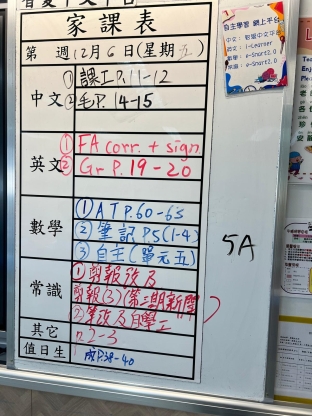 家課表
第 週 12月6日(星期五)
中文 ①課工P.11-12
②毛P.14-15
英文 ①FA corr. + sign
②Gr P.19-20
數學 ①AT P.60-65
②筆記P5(1-4)
③自主(單元五)
常識 ①剪報改及
剪報(3)(第三期新聞)
②筆改及自學工
其它 P.2-3
值日生 P.38-40
5A
自主學習 網上平台
英文: i-Learner
數學: e-Smart2.0
常識: e-Smart2.0